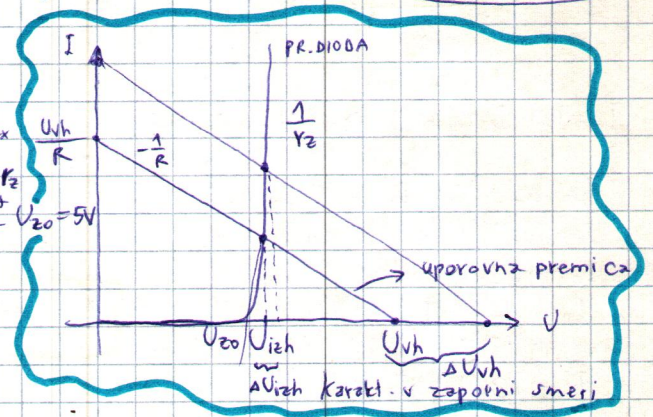 I
PR. DIODA
1/rz
Uvh/R
-1/R
*
rz
Uzo = 5V
uporovna premica
Uzo
Uizh
Uvh
U
ΔUvh
ΔUizh karakt. v zaporni smeri